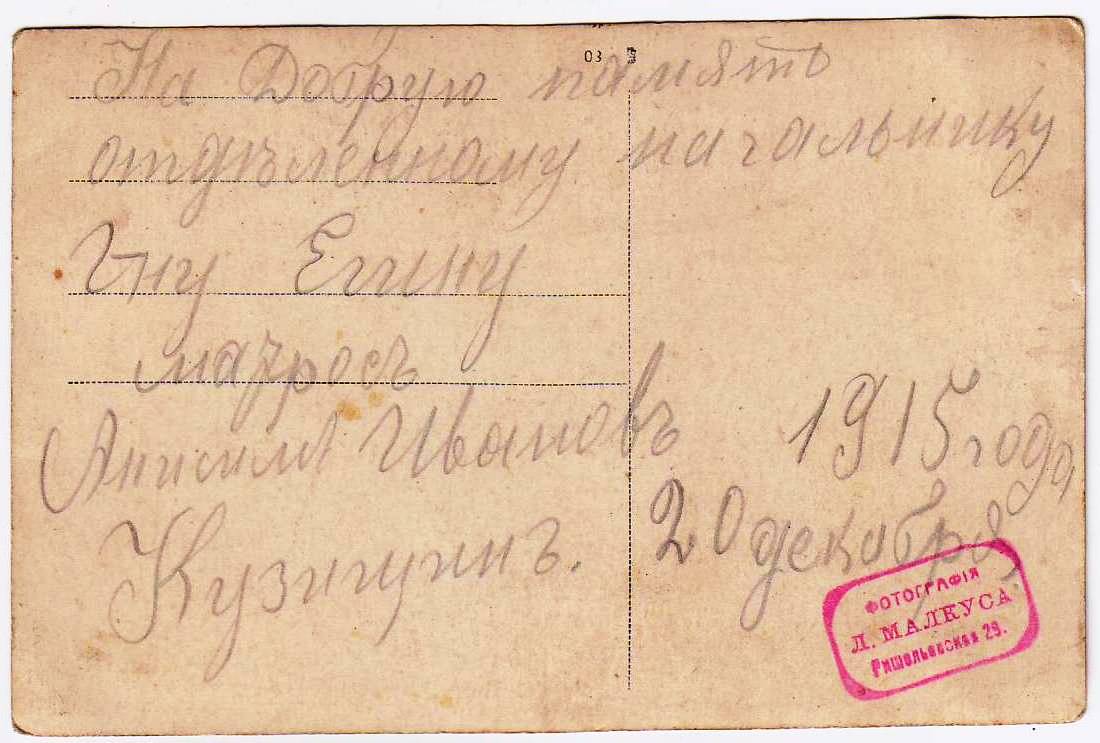 03
На Добрую память
отдѣленному начальнику
Г-ну Егину
матросъ
Анисимъ Ивановъ
1915 года
20 декабря
ФОТОГРАФІЯ
Л. МАЛКУСА
Ришельевская 29.